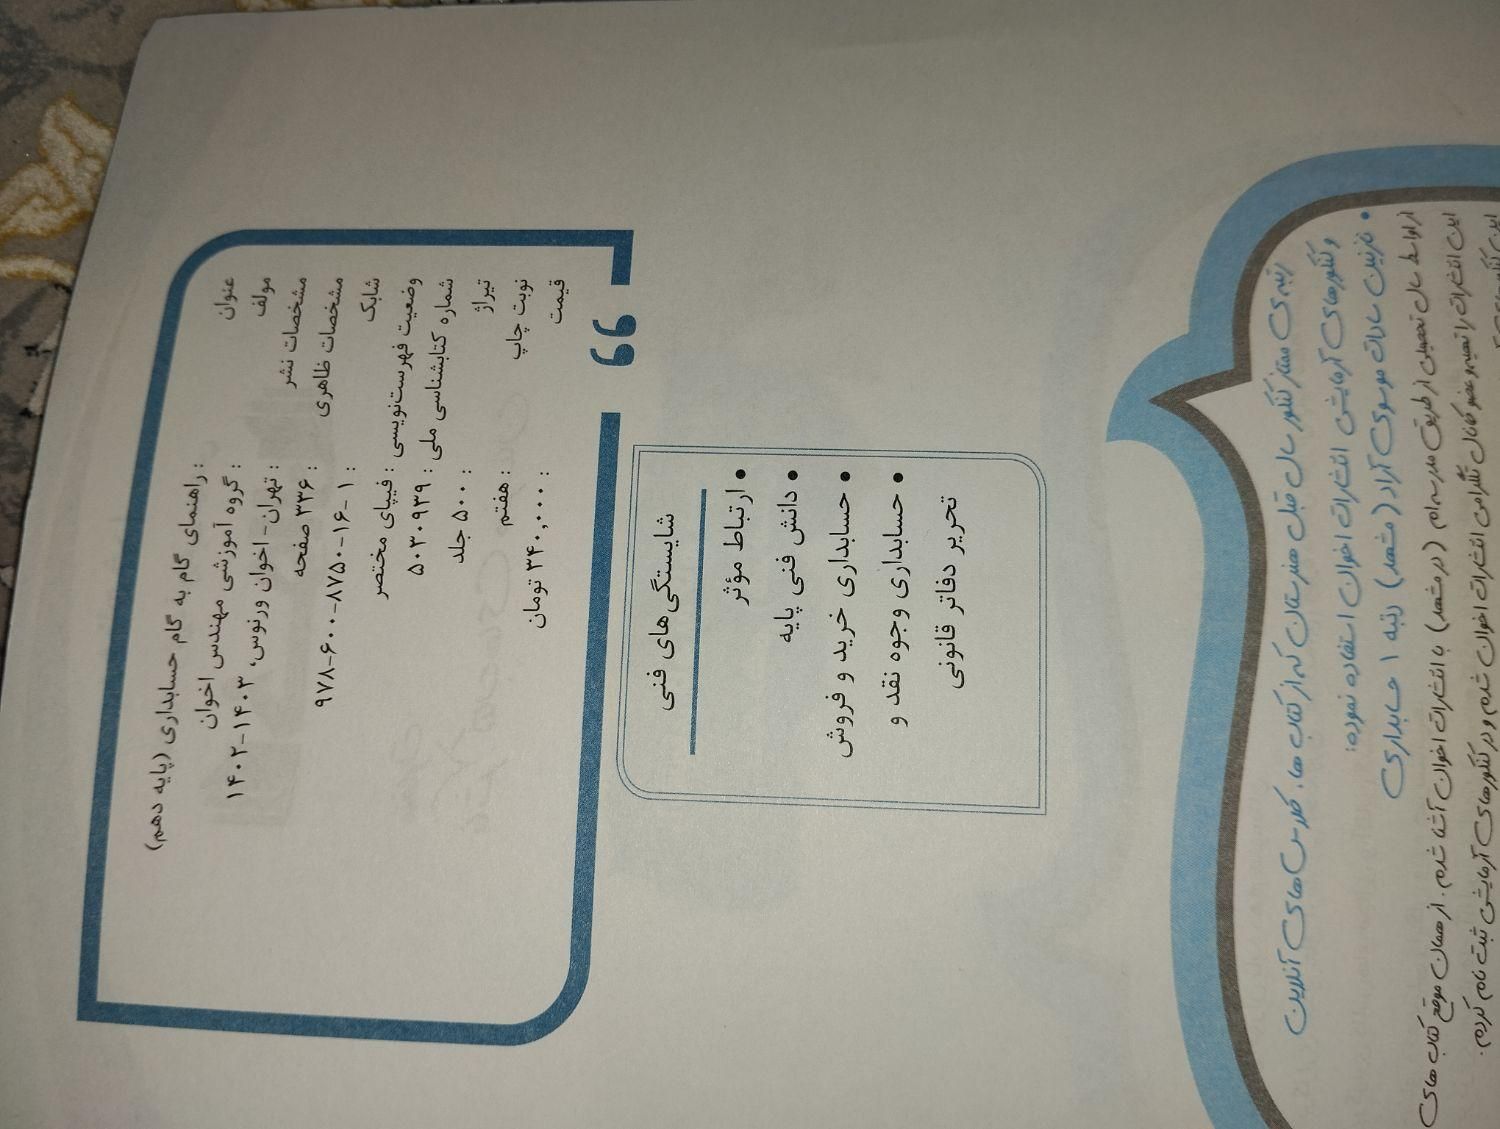 عنوان : راهنمای گام به گام حسابداری (پایه دهم)
مولف : گروه آموزشی مهندس اخوان
مشخصات نشر : تهران- اخوان ورنوس، ۱۴۰۳-۱۴۰۲
مشخصات ظاهری : ۳۳۶ صفحه
شابک : ۹۷۸-۶۰۰-۸۷۵۰-۱۶-۱
وضعیت فهرست‌نویسی : فیپای مختصر
شماره کتابشناسی ملی : ۵۰۳۰۹۳۹
تیراژ : ۵۰۰ جلد
نوبت چاپ : هفتم
قیمت : ۳۴۰,۰۰۰ تومان
شایستگی‌های فنی
• ارتباط مؤثر
• دانش فنی پایه
• حسابداری خرید و فروش
• حسابداری وجوه نقد و
تحریر دفاتر قانونی
رتبه‌ی ممتاز کنکور سال قبل هنرستان که از کتاب ها، کلاس های آنلاین
و کنکورهای آزمایشی انتشارات اخوان استفاده نموده:
• نازنین سادات موسوی آزاد (مشهد) رتبه ۱ حسابداری
از اواسط سال تحصیلی از طریق مدرسه ام (در مشهد) با انتشارات اخوان آشنا شدم. از همان موقع کتاب های
این انتشارات را تهیه و عضو کانال تلگرامی انتشارات اخوان شدم و در کنکورهای آزمایشی ثبت نام کردم.